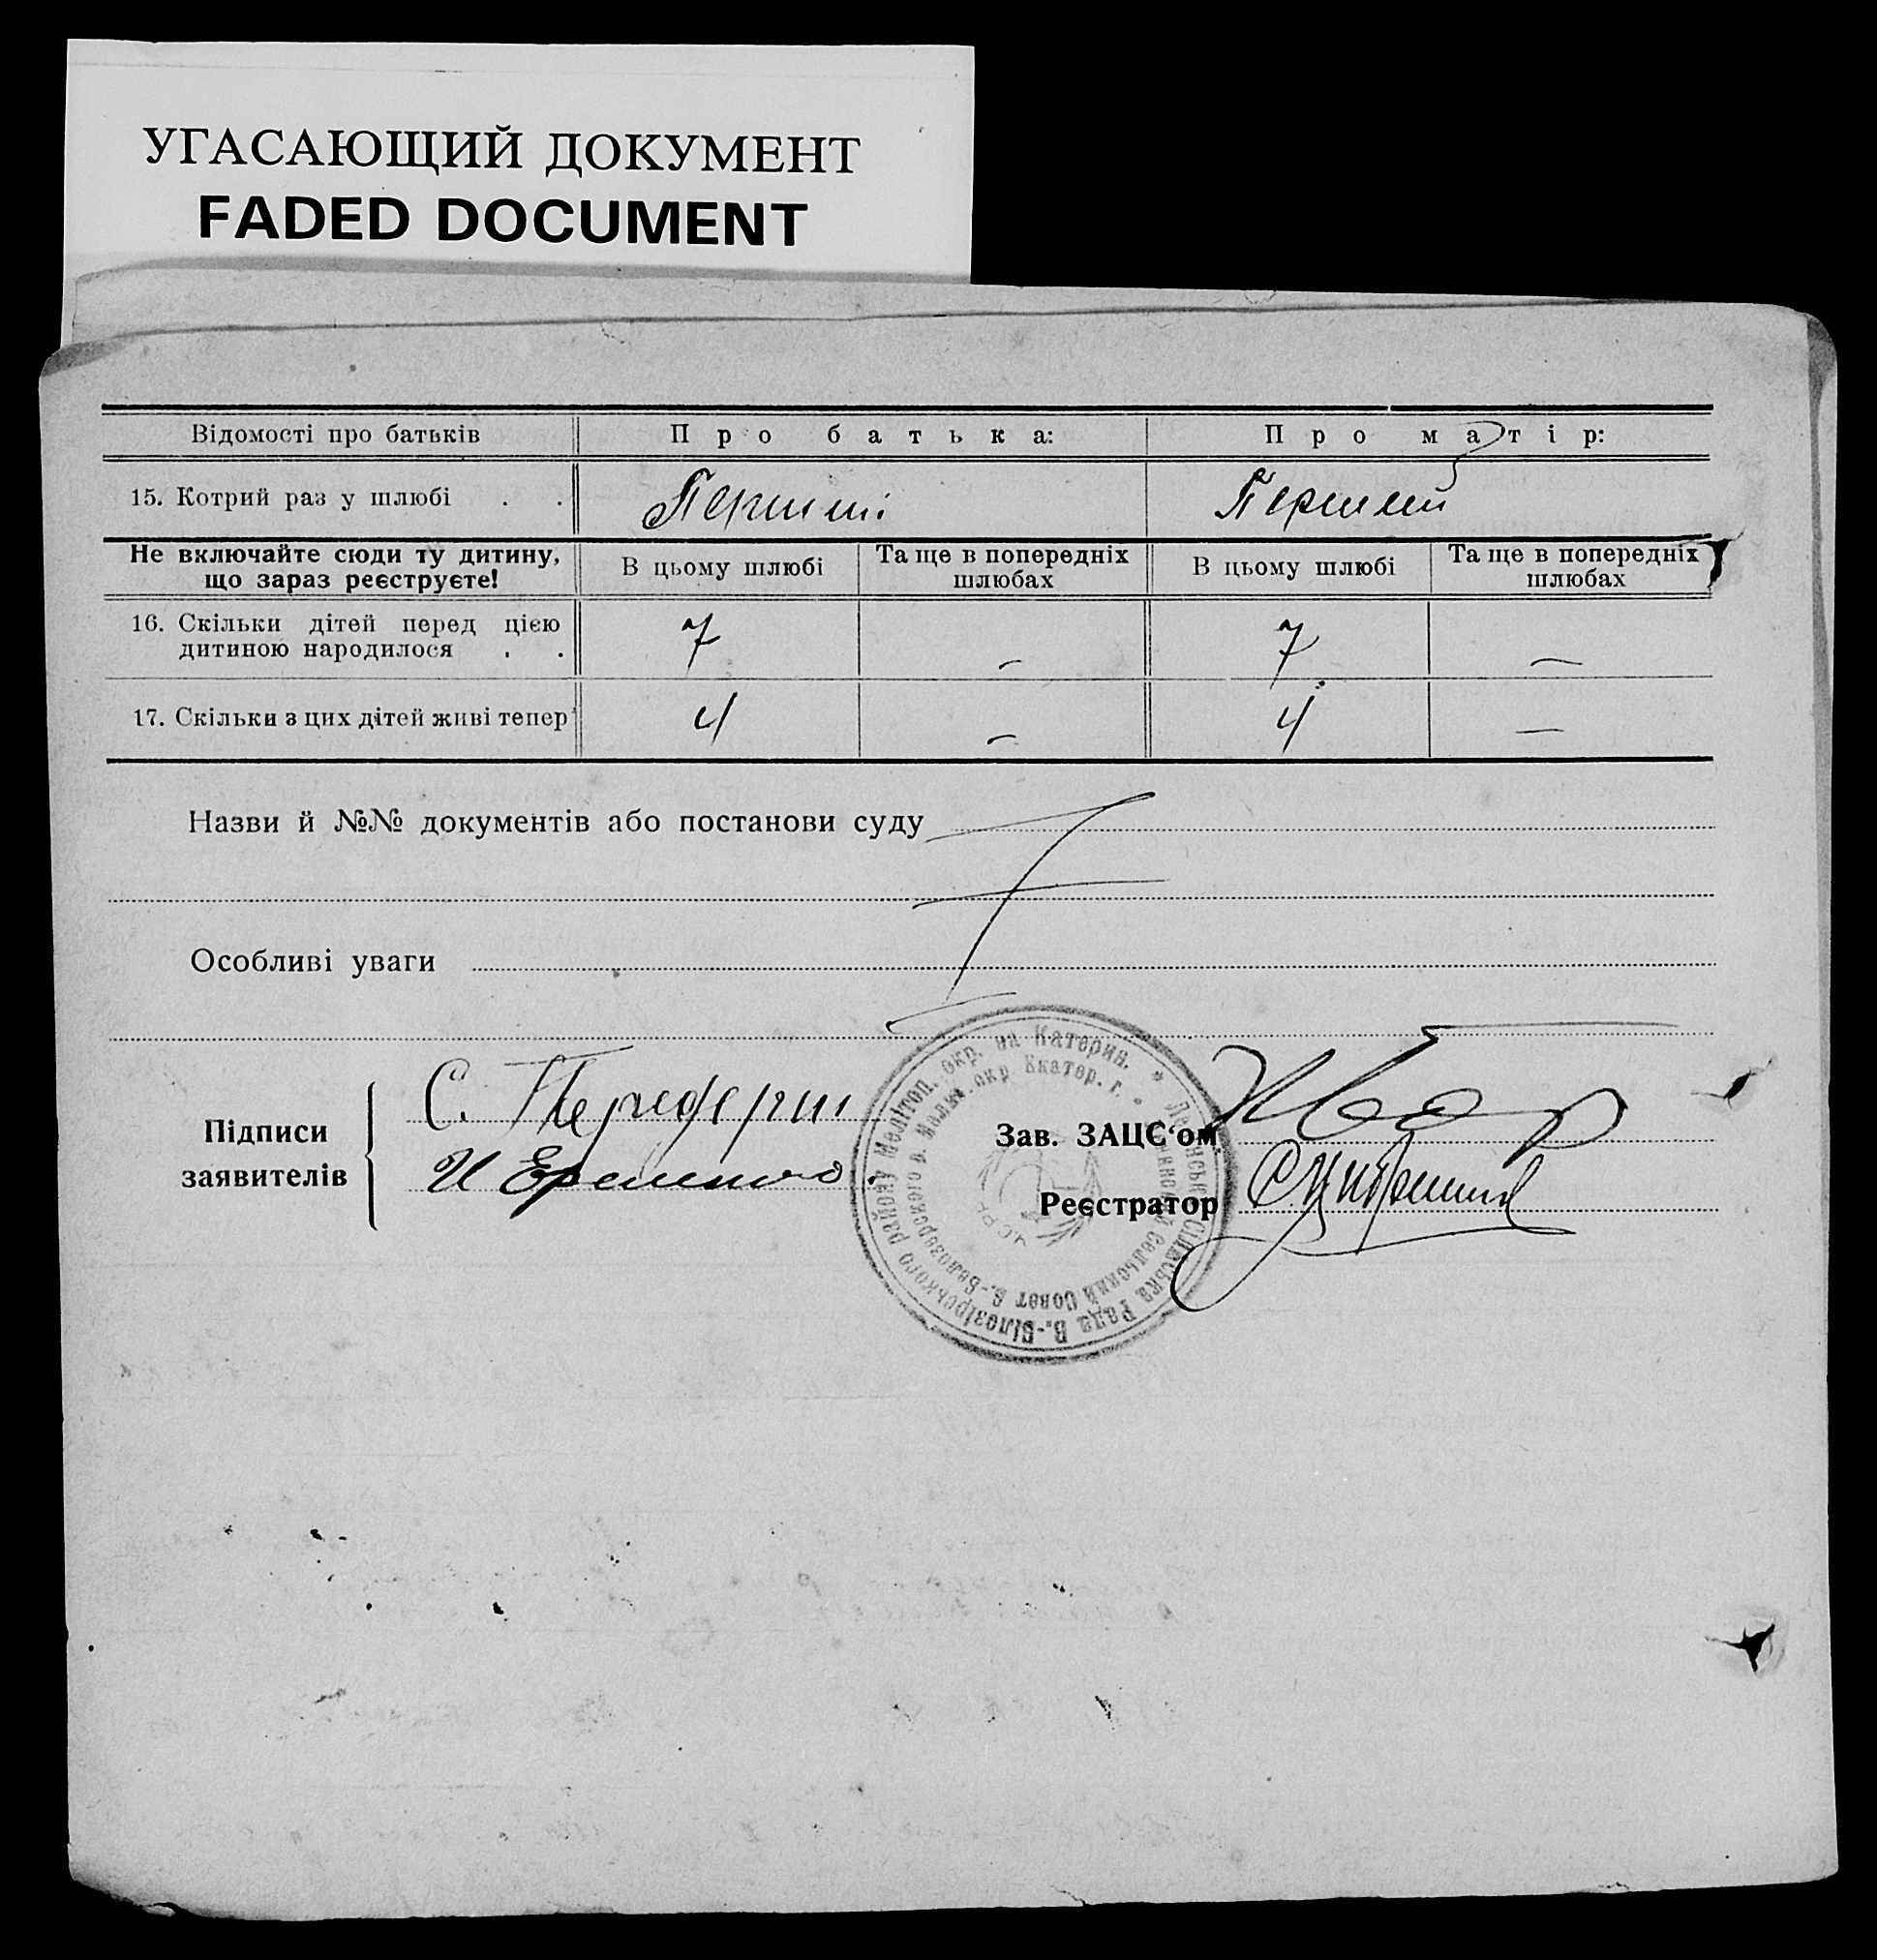 УГАСАЮЩИЙ ДОКУМЕНТ
FADED DOCUMENT
Відомості про батьків
Про батька:
Про матір:
15. Котрий раз у шлюбі . .
Перший
Перший
Не включайте сюди ту дитину,
що зараз реєструєте!
В цьому шлюбі
Та ще в попередніх
шлюбах
В цьому шлюбі
Та ще в попередніх
шлюбах
16. Скільки дітей перед цією
дитиною народилося . .
7
—
7
—
17. Скільки з цих дітей живі тепер
4
—
4
—
Назви й №№ документів або постанови суду
Особливі уваги
Підписи
заявителів
С.
И Еременко
Зав. ЗАЦС'ом
Реєстратор
Сільська Рада В.-Білозірського району Мелітоп. окр. на Катерин.
Сельский Совет В.-Белозерского р. Мелит. окр Екатер. г.